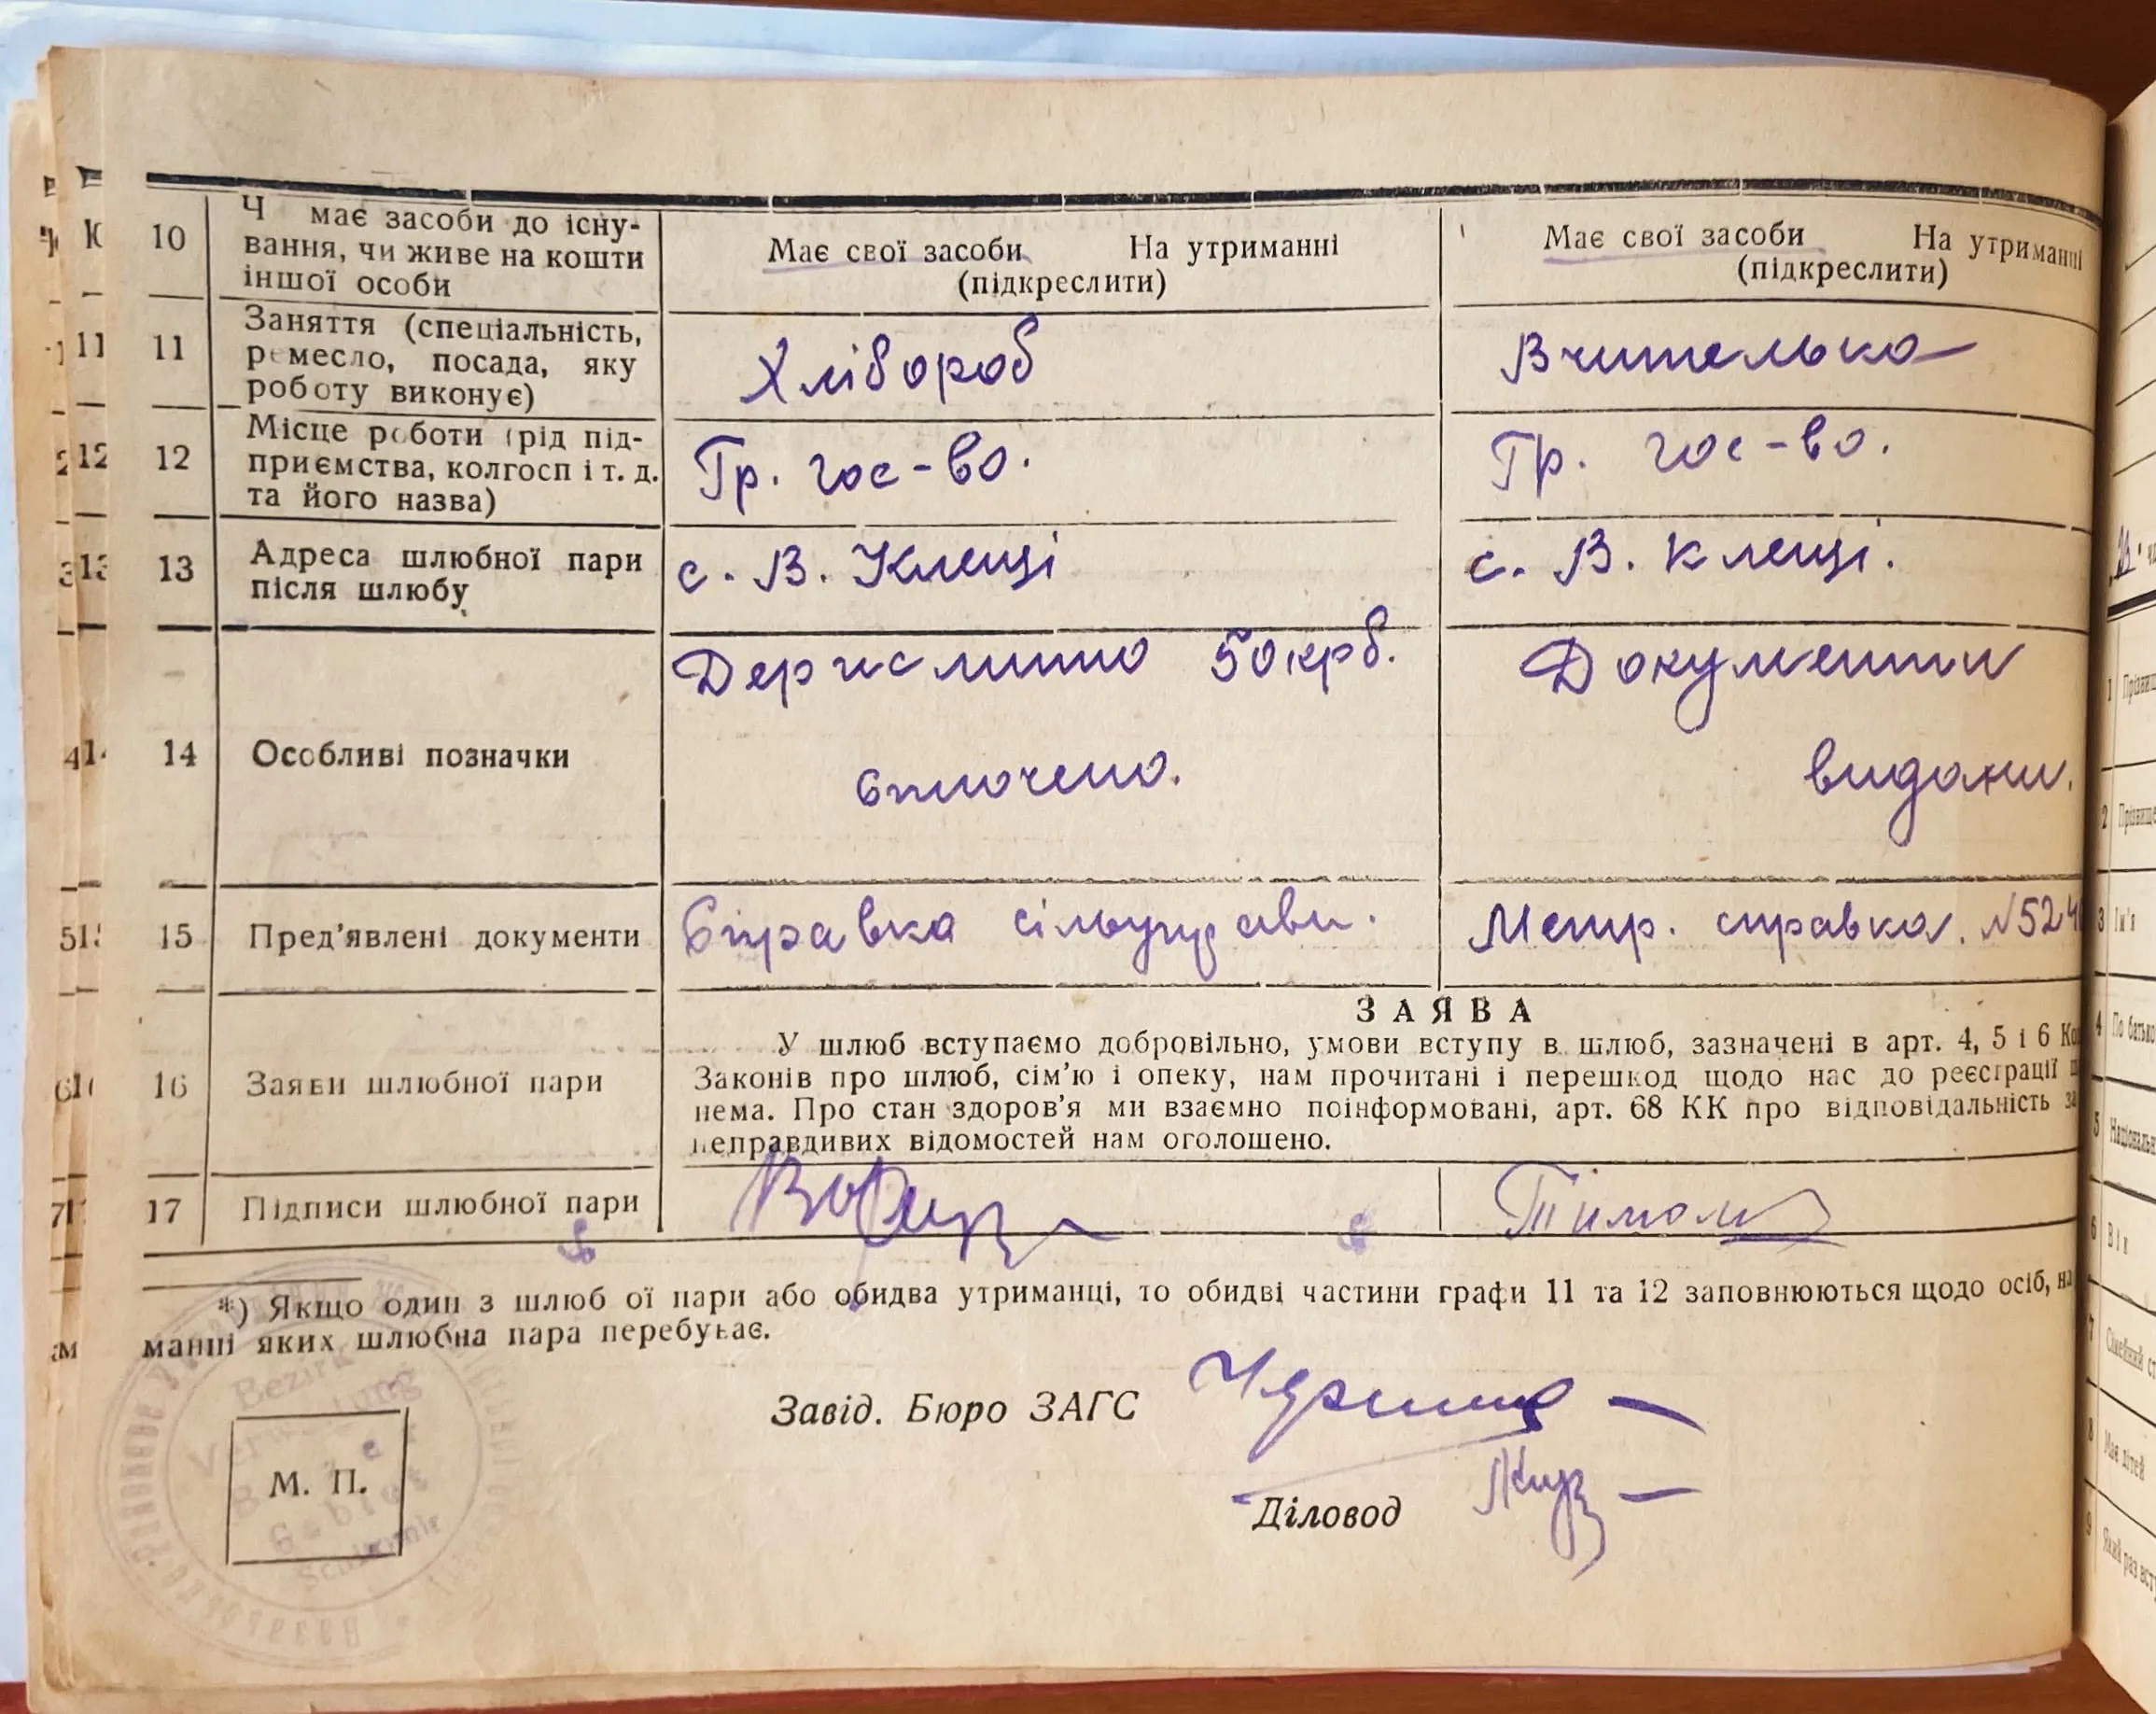 10
Ч має засоби до існу-
вання, чи живе на кошти
іншої особи
Має свої засоби На утриманні
(підкреслити)
Має свої засоби На утриманні
(підкреслити)
11
Заняття (спеціальність,
ремесло, посада, яку
роботу виконує)
Хлібороб
Вчителька
12
Місце роботи (рід під-
приємства, колгосп і т. д.
та його назва)
Гр. гос-во.
Гр. гос-во.
13
Адреса шлюбної пари
після шлюбу
с. В. Клещі
с. В. Клещі.
14
Особливі позначки
Держмито 50 крб.
сплочено.
Документи
видани.
15
Пред'явлені документи
Справка сільуправи.
Метр. справка. №524
16
Заяви шлюбної пари
ЗАЯВА
У шлюб вступаємо добровільно, умови вступу в шлюб, зазначені в арт. 4, 5 і 6
Законів про шлюб, сім'ю і опеку, нам прочитані і перешкод щодо нас до реєстрації
нема. Про стан здоров'я ми взаємно поінформовані, арт. 68 КК про відповідальність за
неправдивих відомостей нам оголошено.
17
Підписи шлюбної пари
*) Якщо один з шлюб ої пари або обидва утриманці, то обидві частини графи 11 та 12 заповнюються щодо осіб, на
манні яких шлюбна пара перебуває.
Завід. Бюро ЗАГС
Діловод
М. П.
Bezirk
Gebiet